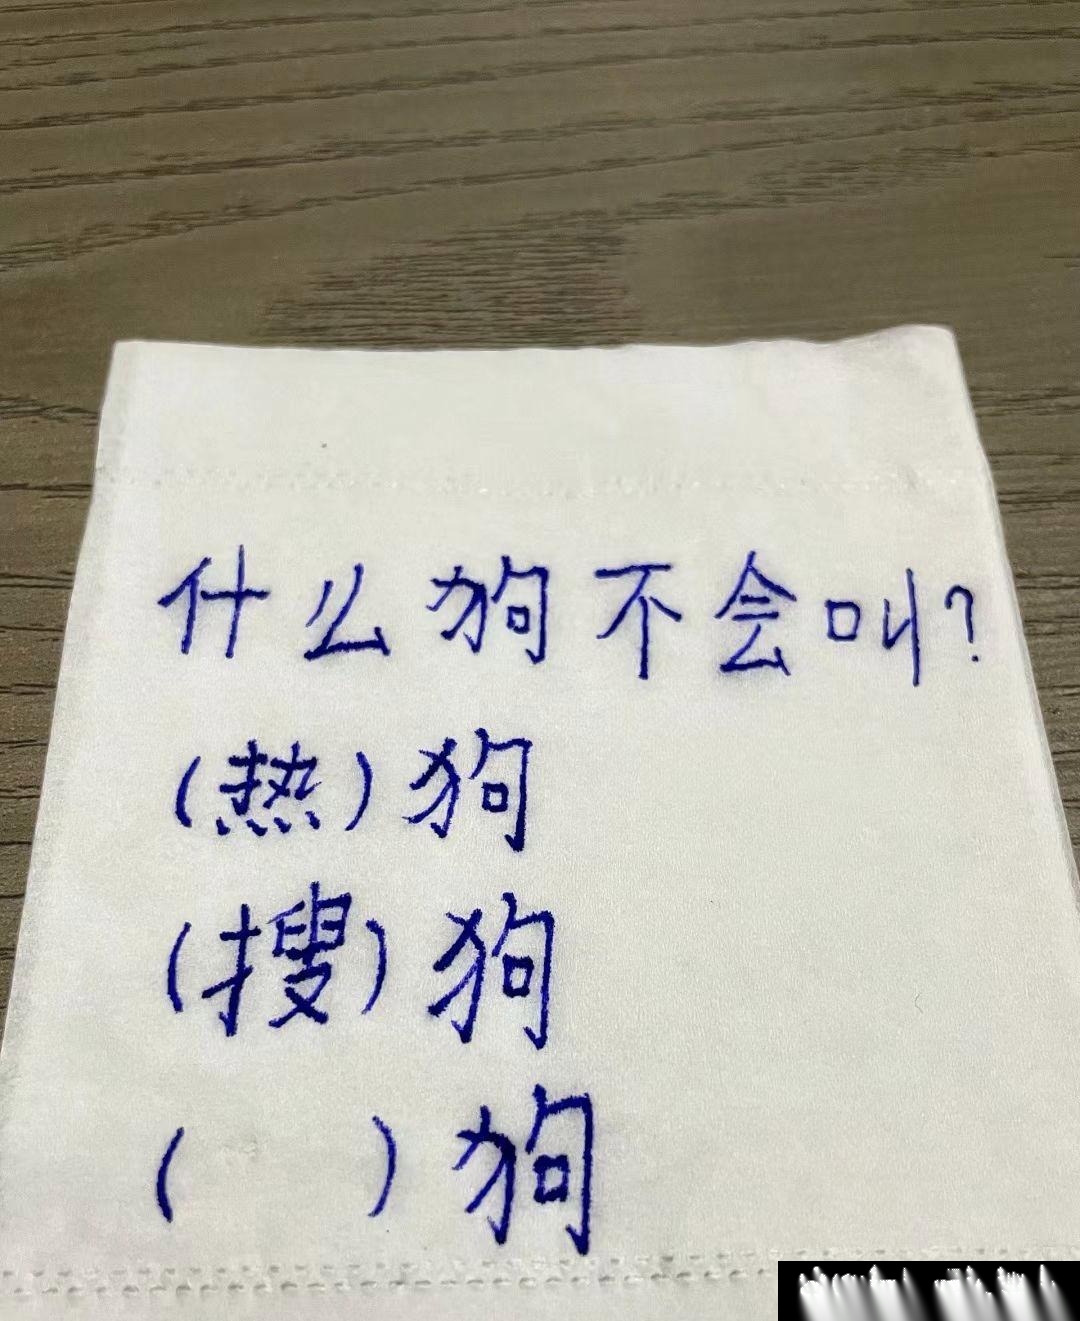 什么狗不会叫?
(热)狗
(搜)狗
( )狗